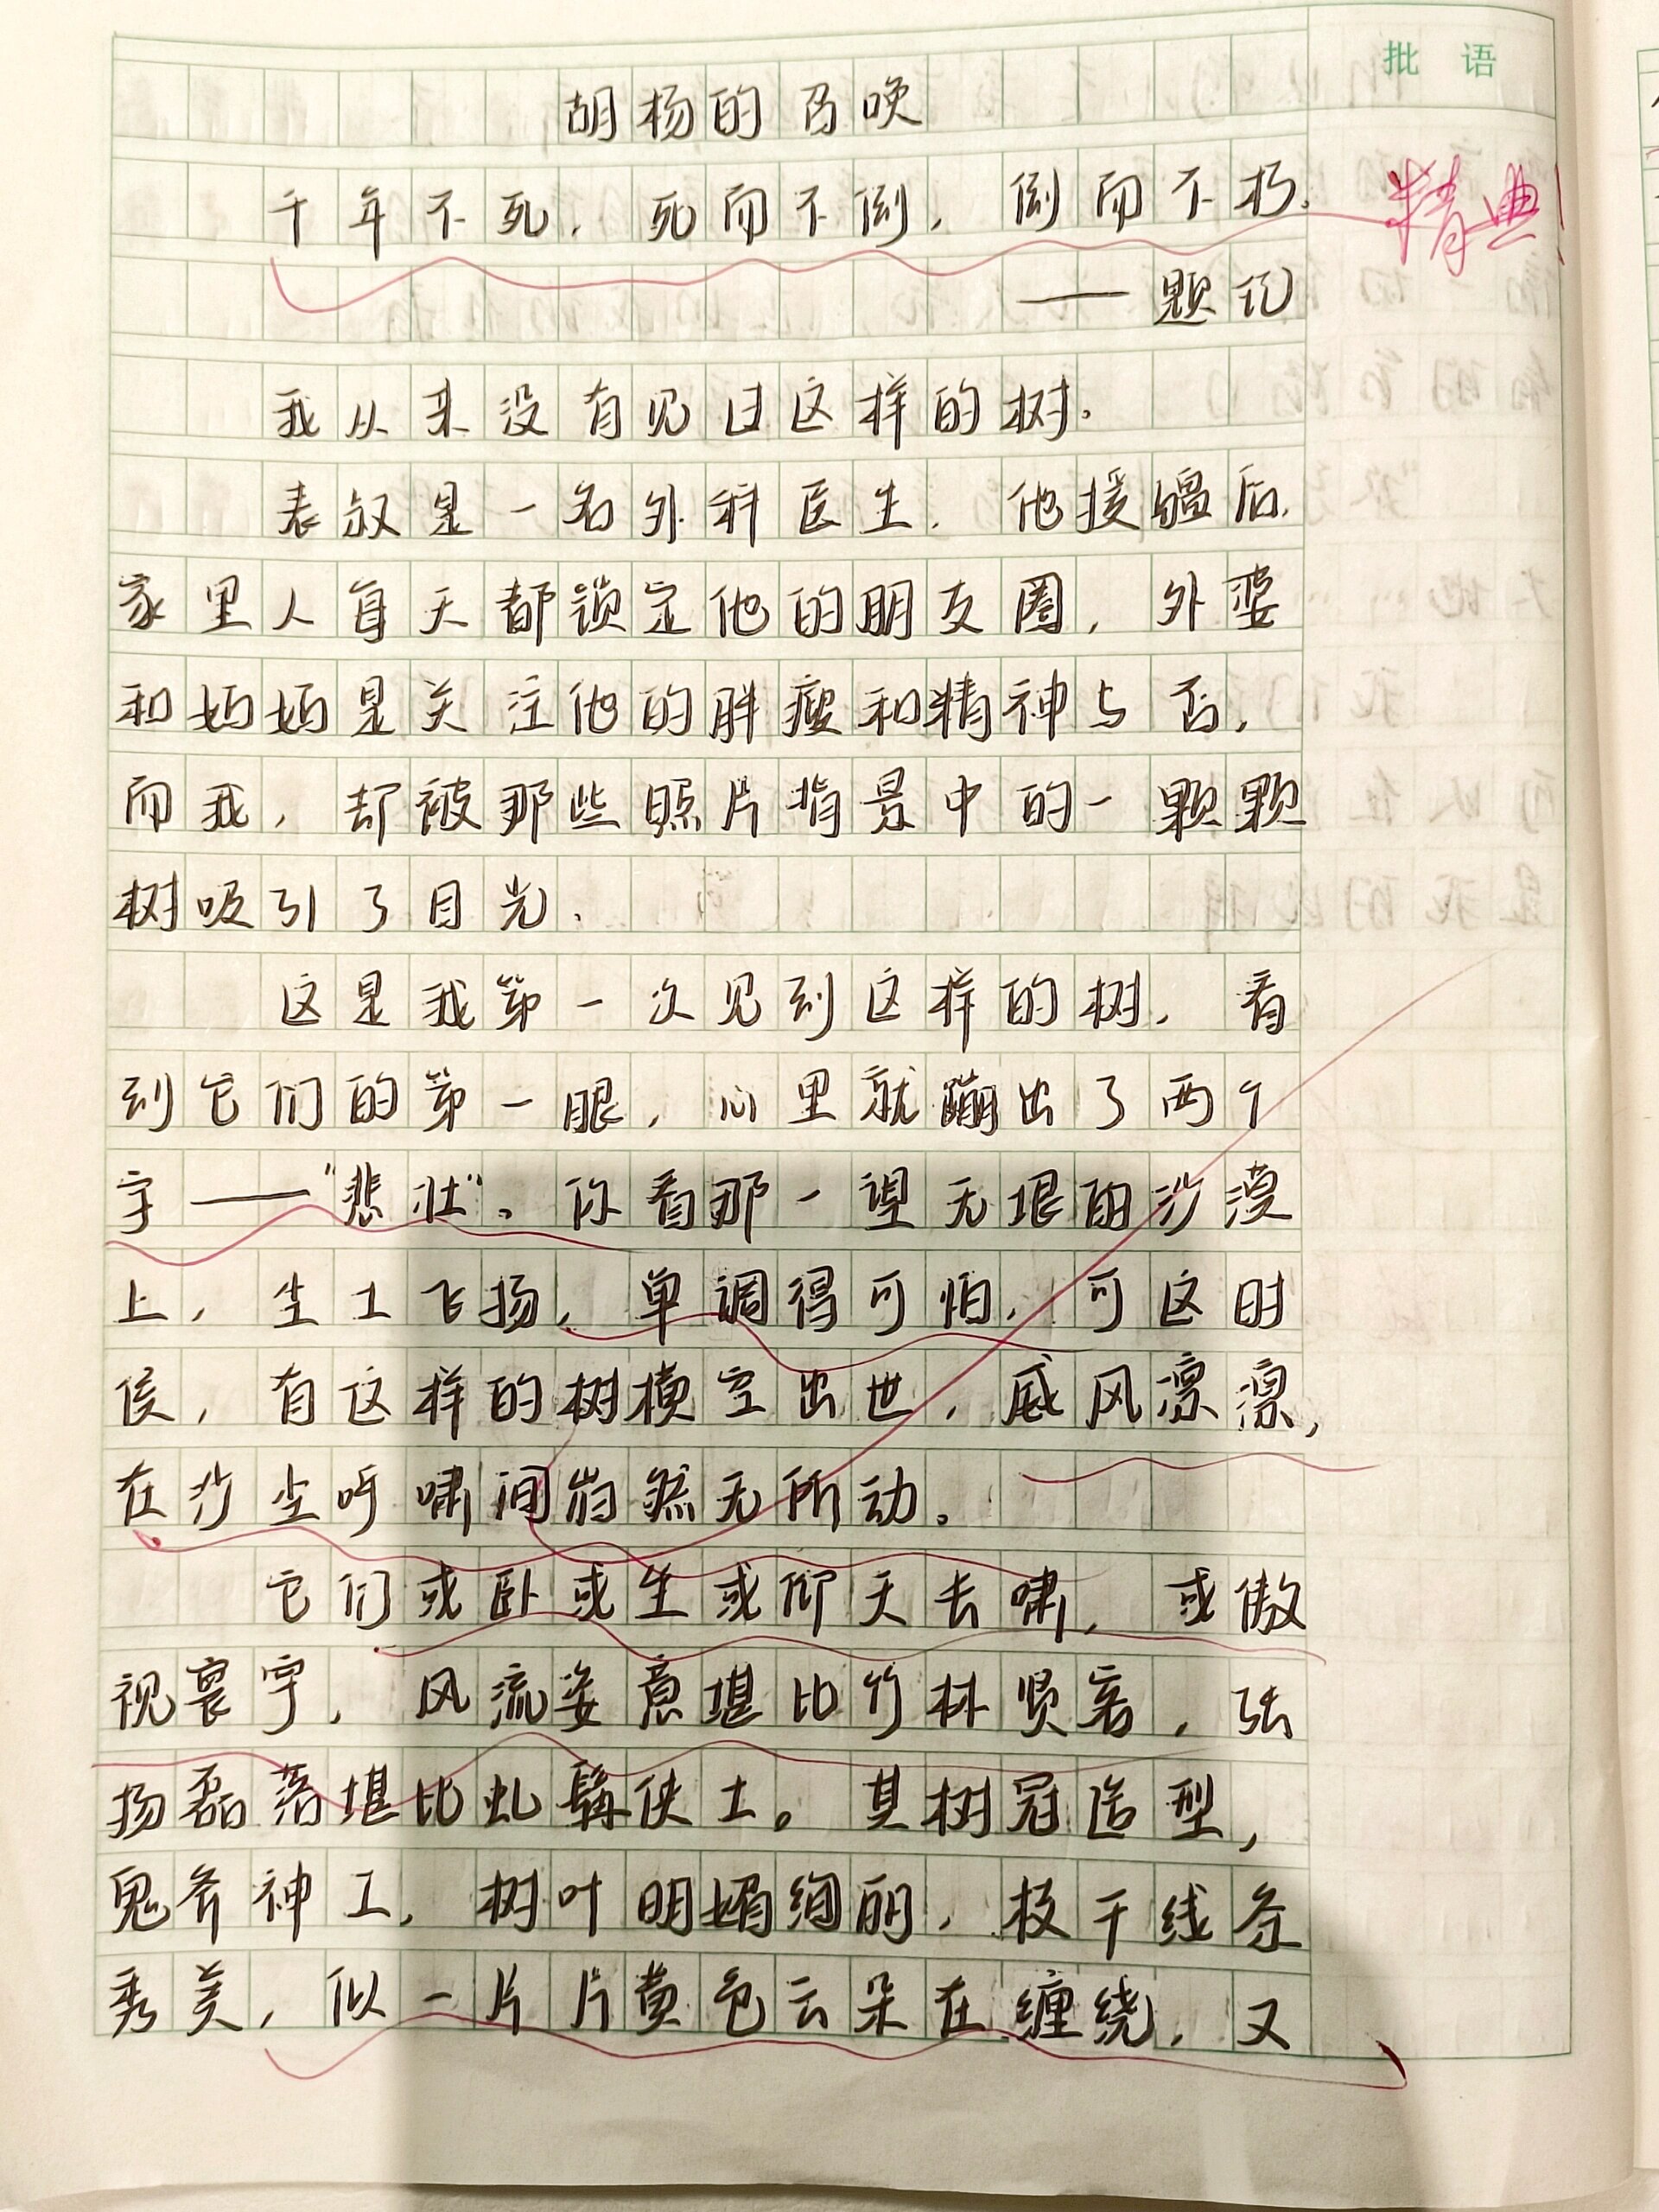 批语
胡杨的召唤
千年不死，死而不倒，倒而不朽。
精典！
——题记
我从来没有见过这样的树。
表叔是一名外科医生，他援疆后，
家里人每天都锁定他的朋友圈，外婆
和妈妈是关注他的胖瘦和精神与否，
而我，却被那些照片背景中的一颗颗
树吸引了目光。
这是我第一次见到这样的树，看
到它们的第一眼，心里就蹦出了两个
字——“悲壮”。你看那一望无垠的沙漠
上，尘土飞扬，单调得可怕，可这时
侯，有这样的树横空出世，威风凛凛，
在沙尘呼啸间岿然无所动。
它们或卧或坐或仰天长啸，或傲
视寰宇，风流姿意堪比竹林贤客，张
扬磊落堪比虬髯侠士。其树冠造型，
鬼斧神工，树叶明媚绚丽，枝干线条
秀美，似一片片黄色云朵在缠绕，又